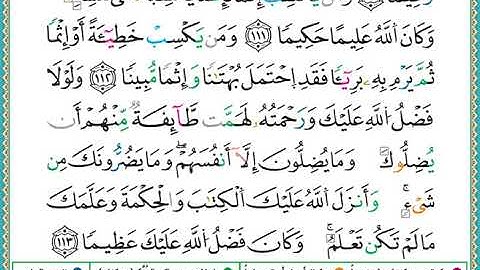 وَكَانَ ٱللَّهُ عَلِيمًا حَكِيمًا ١١١ وَمَن يَكْسِبْ خَطِيٓـَٔةً أَوْ إِثْمًا
ثُمَّ يَرْمِ بِهِۦ بَرِيٓـًٔا فَقَدِ ٱحْتَمَلَ بُهْتَٰنًا وَإِثْمًا مُّبِينًا ١١٢ وَلَوْلَا
فَضْلُ ٱللَّهِ عَلَيْكَ وَرَحْمَتُهُۥ لَهَمَّت طَّآئِفَةٌ مِّنْهُمْ أَن
يُضِلُّوكَ وَمَا يُضِلُّونَ إِلَّآ أَنفُسَهُمْ ۖ وَمَا يَضُرُّونَكَ مِن
شَىْءٍ ۚ وَأَنزَلَ ٱللَّهُ عَلَيْكَ ٱلْكِتَٰبَ وَٱلْحِكْمَةَ وَعَلَّمَكَ
مَا لَمْ تَكُن تَعْلَمُ ۚ وَكَانَ فَضْلُ ٱللَّهِ عَلَيْكَ عَظِيمًا ١١٣